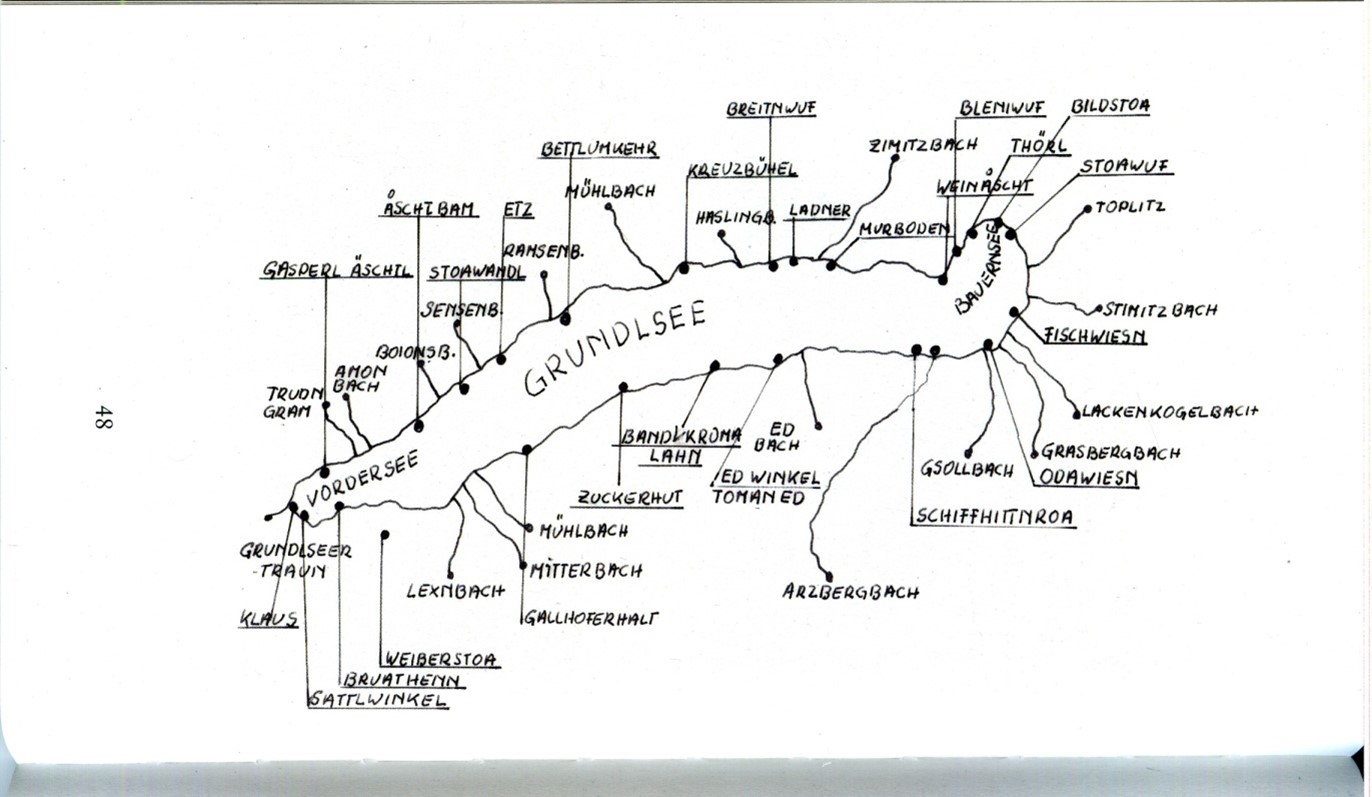 BREITNWUF
BLENIWUF
BILDSTOA
BETTLUMKEHR
ZIMITZBACH
THÖRL
KREUZBÜHEL
STOAWUF
MÜHLBACH
WEINÅSCHT
ÅSCHTBAM
ETZ
HASLINGB.
LADNER
TOPLITZ
MURBODEN
RAMSENB.
GASPERL ÅSCHTL
STOAWANDL
BAUERNSEE
SENSENB.
GRUNDLSEE
STIMITZBACH
FISCHWIESN
BOIONSB.
AMON
BACH
TRUDN
GRAM
LACKENKOGELBACH
BANDLKROMA
LAHN
ED
BACH
GRASBERGBACH
GSOLLBACH
ODAWIESN
VORDERSEE
ED WINKEL
TOMAN ED
ZUCKERHUT
SCHIFFHITTNROA
MÜHLBACH
GRUNDLSEER
-TRAUN
MITTERBACH
LEXNBACH
ARZBERGBACH
KLAUS
GALLHOFERHALT
WEIBERSTOA
BRUATHENN
SATTLWINKEL
48